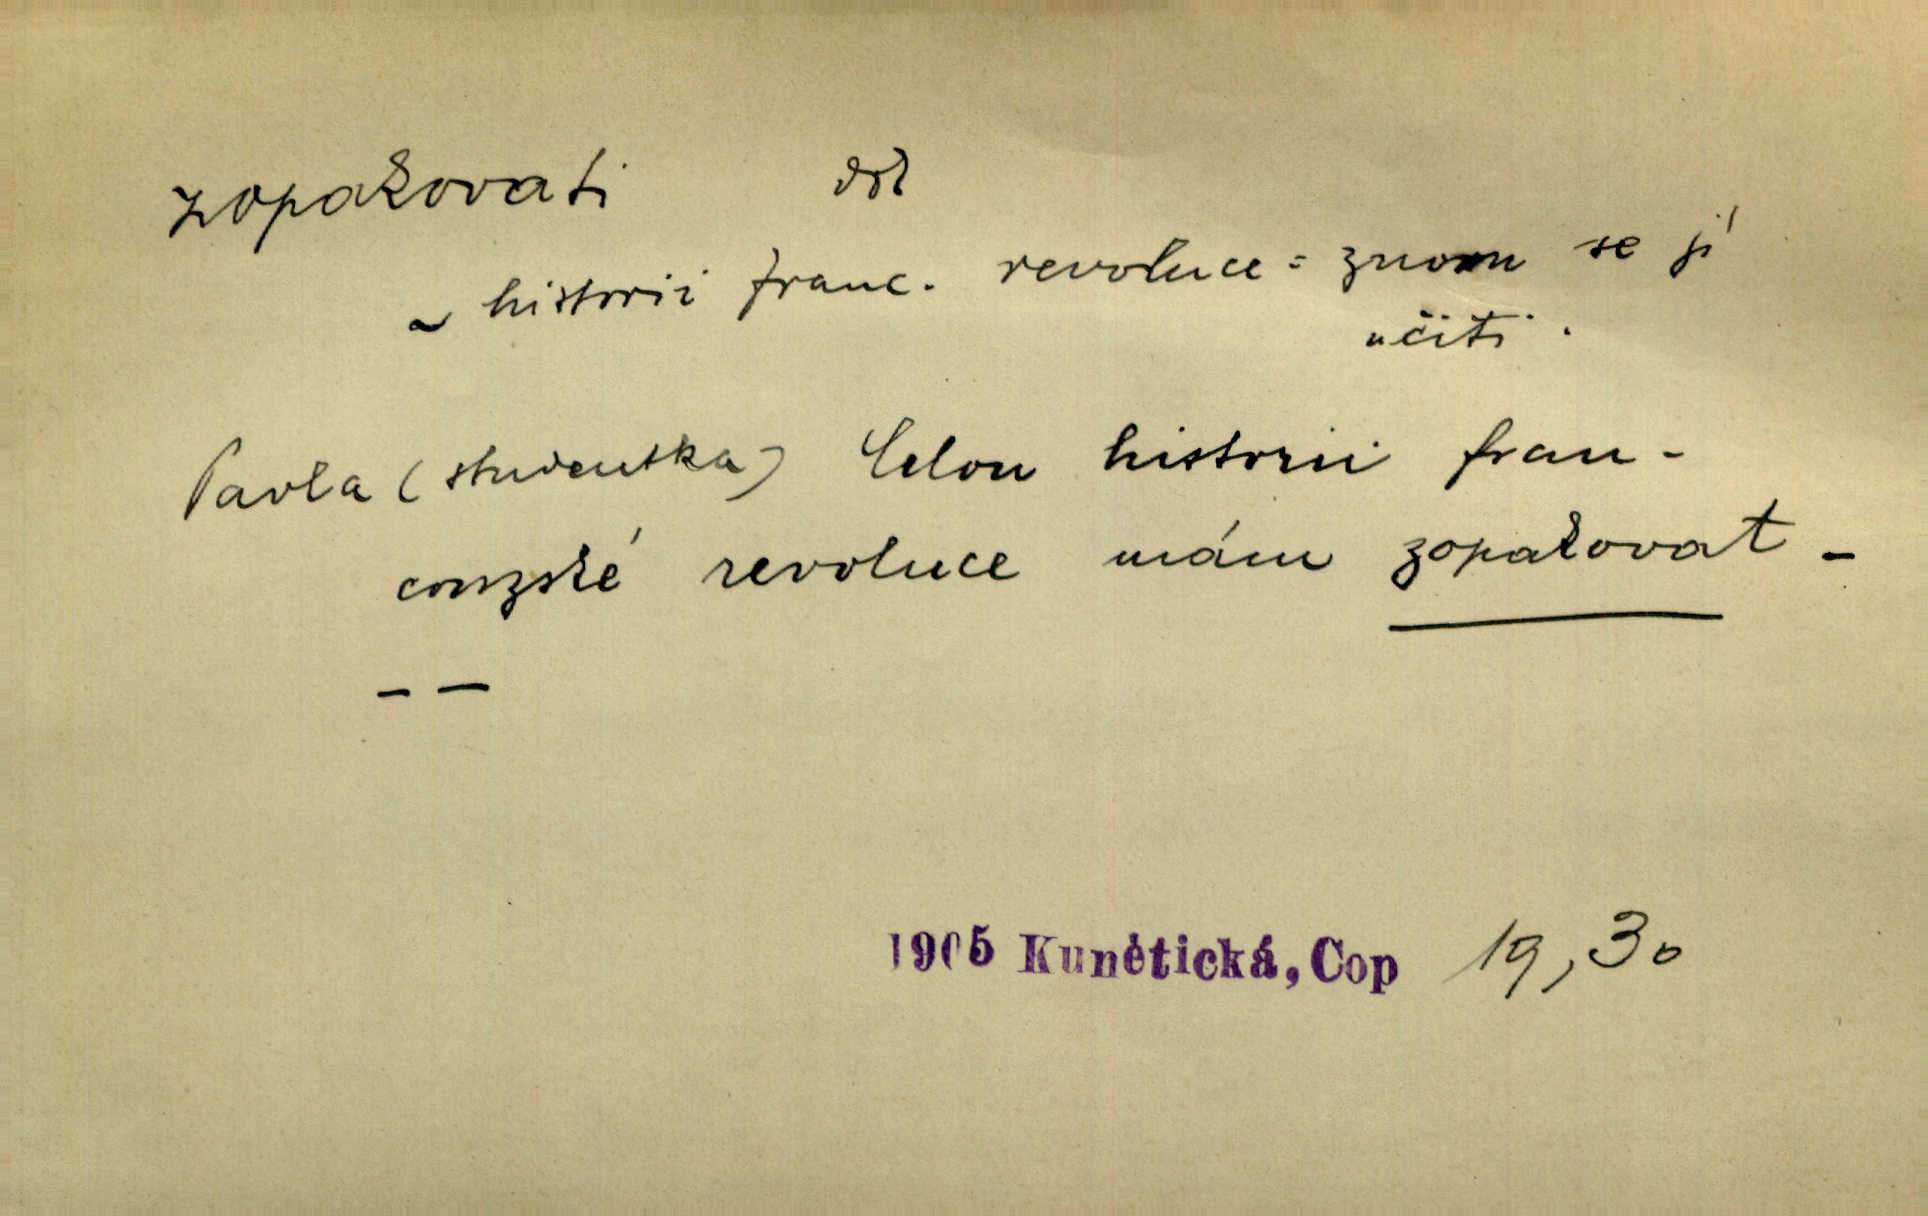 zopakovati dok
~ historii franc. revoluce = znovu se jí
učiti.
Pavla (studentka) Celou historii fran-
couzské revoluce mám zopakovat -
- -
1905 Kunětická, Cop 19, 30